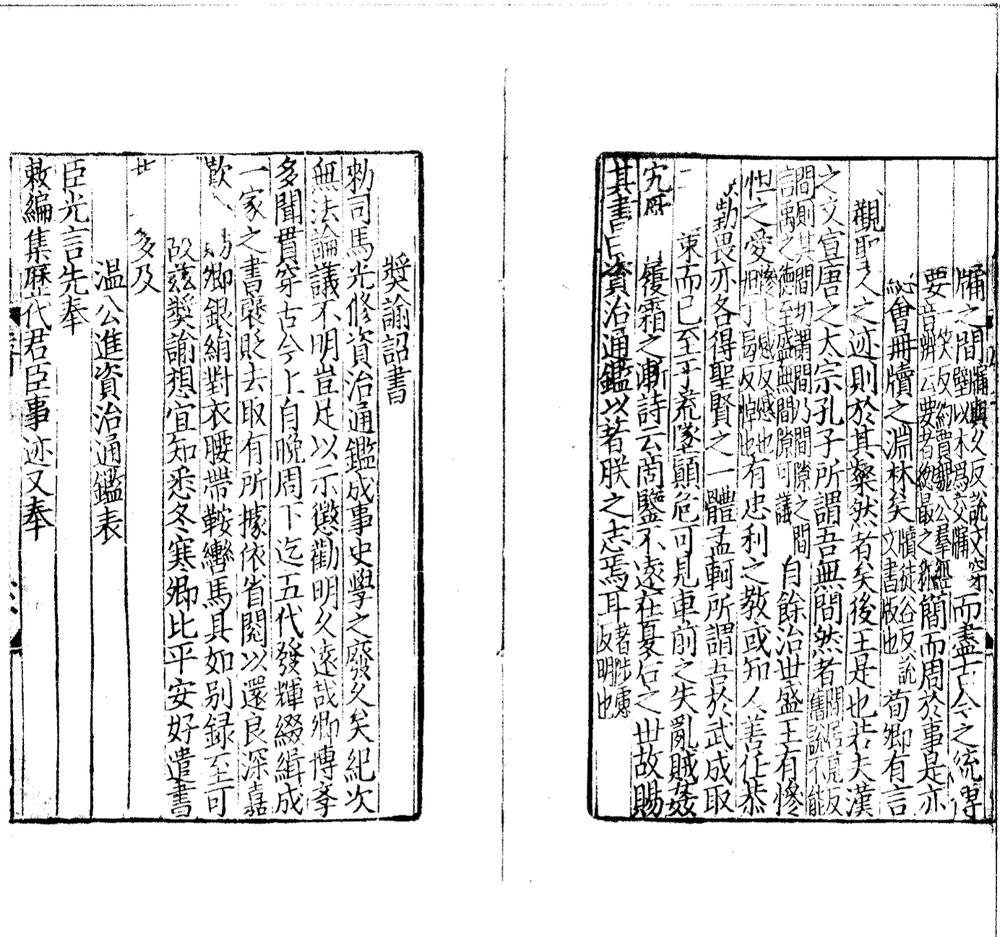 牖之間牖與久反說文穿壁以木爲交牖而盡古今之統博
要一笑反約賈公羣經音辨云要者總最之稱簡而周於事是亦
會冊牘之淵林矣牘徒谷反說文書版也荀卿有言
觀聖人之迹則於其粲然者矣後王是也若夫漢
之文宣唐之太宗孔子所謂吾無間然者間居莧反舊說不能
間則其間切謂間乃間隙之間言禹之德至盛無間隙可議自餘治世盛王有慘
怛之愛有忠利之教或知人善任恭
勤畏亦各得聖賢之一體孟軻所謂吾於武成取
而已至于荒墜顛危可見車前之失亂賊姦
宄厥履霜之漸詩云商鑒不遠在夏后之世故賜
其書曰資治通鑑以著朕之志焉耳著陟慮反明也
獎諭詔書
勑司馬光修資治通鑑成事史學之廢久矣紀次
無法論議不明豈足以示懲勸明久遠哉卿博學
多聞貫穿古今上自晚周下迄五代發輝綴緝成
一家之書襃貶去取有所據依省閱以還良深嘉
歎卿銀絹對衣腰帶鞍轡馬具如别録至可
故茲獎諭想宜知悉冬寒卿比平安好遣書
多及
温公進資治通鑑表
臣光言先奉
敕編集歷代君臣事迹又奉